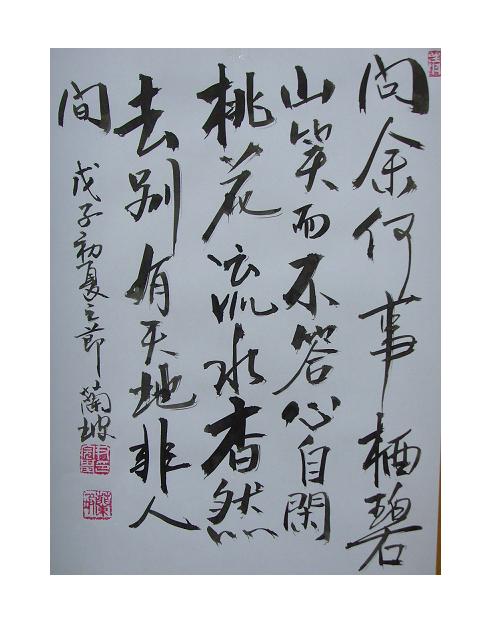 問余何事栖碧
山笑而不答心自閑
桃花流水杳然
去別有天地非人
間
戊子初夏之節 蘭坡